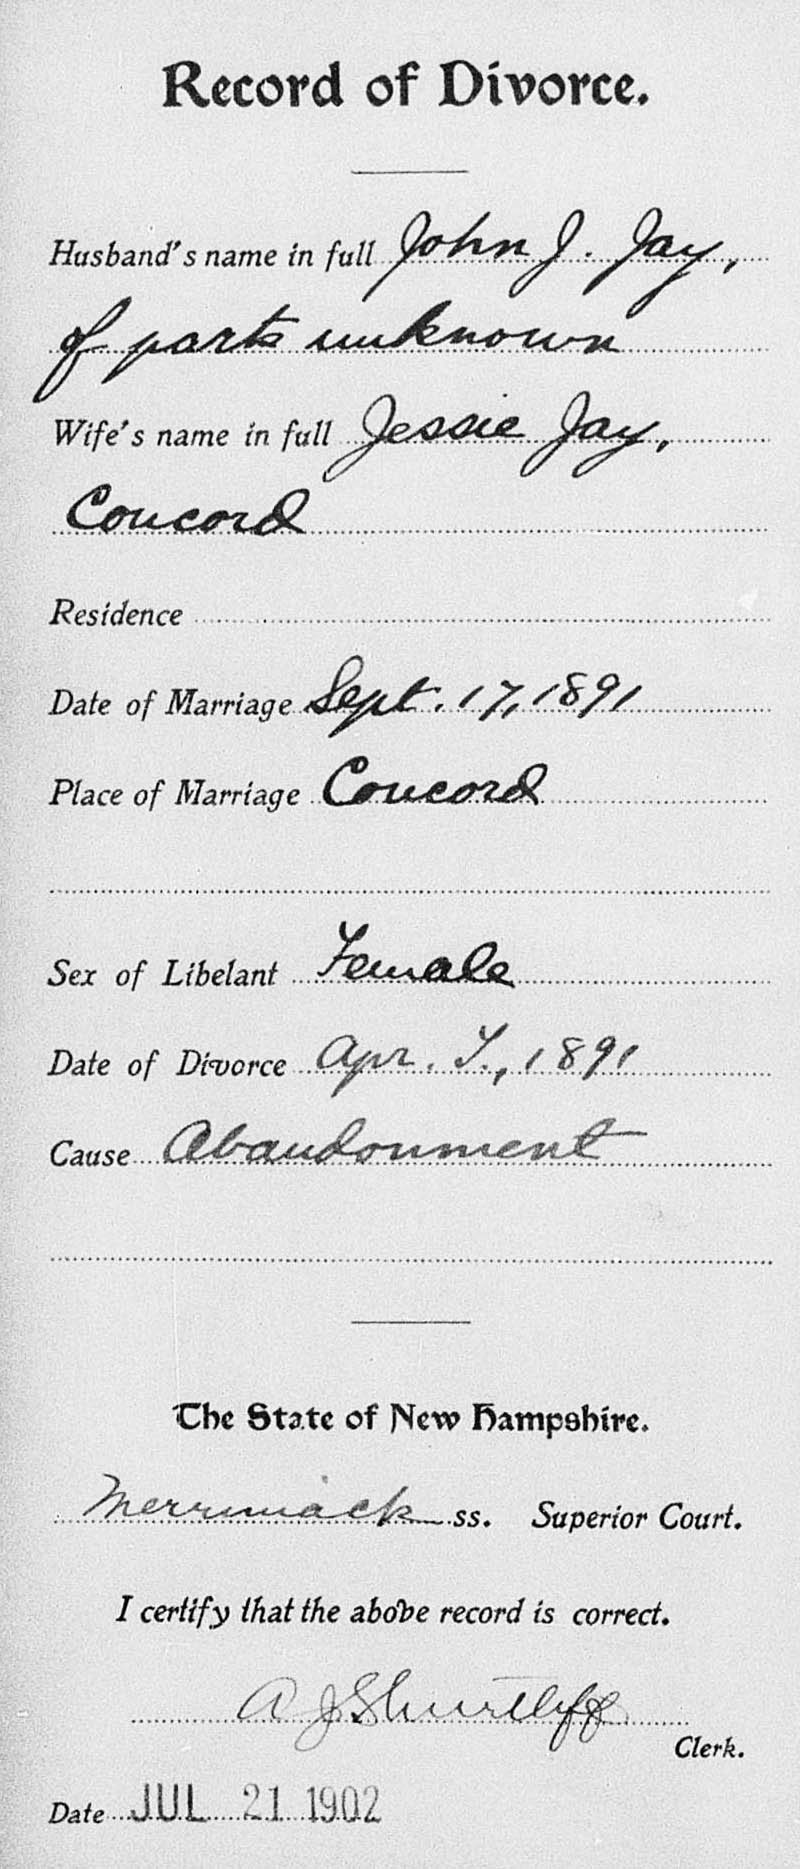 Record of Divorce.
Husband's name in full John J. Jay,
of parts unknown
Wife's name in full Jessie Jay,
Concord
Residence
Date of Marriage Sept. 17, 1891
Place of Marriage Concord
Sex of Libelant Female
Date of Divorce Apr. 7., 1891
Cause Abandonment
The State of New Hampshire.
Merrimack ss. Superior Court.
I certify that the above record is correct.
A J Shurtleff
Clerk.
Date JUL 21 1902